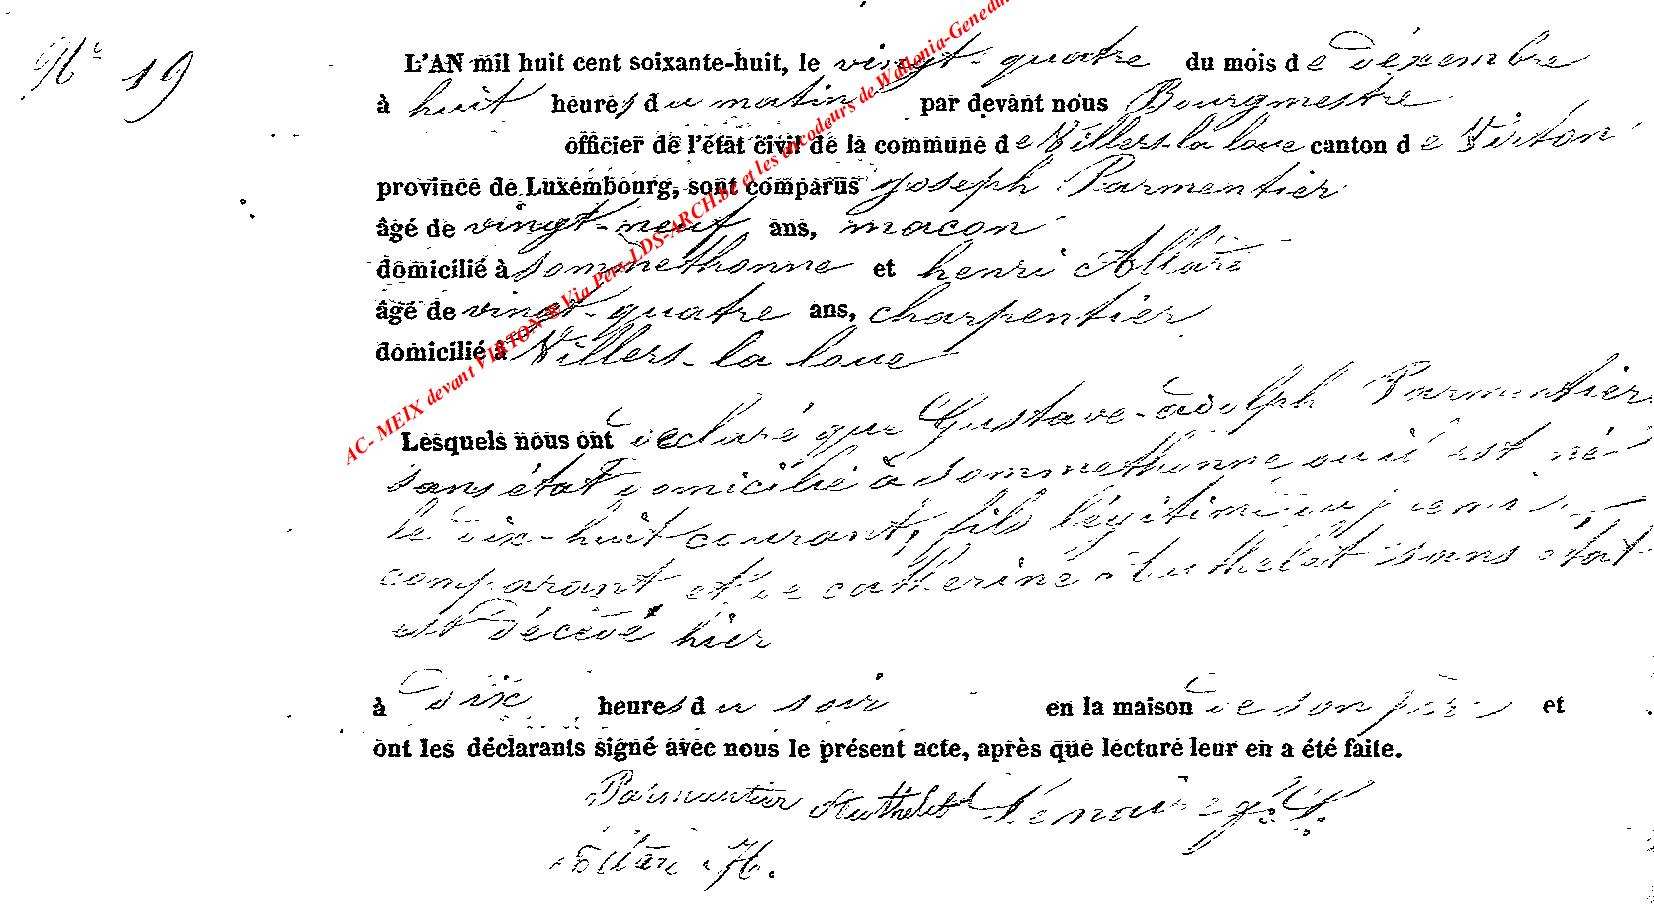 N° 19
L'AN mil huit cent soixante-huit, le vingt-quatre du mois de décembre
à huit heures du matin par devant nous Bourgmestre
officier de l'état civil de la commune de Villers-la loue canton de Virton
province de Luxembourg, sont comparus joseph Parmentier
âgé de vingt-neuf ans, macon
domicilié à sommethonne et henri Allard
âgé de vingt-quatre ans, charpentier
domicilié à Villers-la loue
Lesquels nous ont déclaré que Gustave-adolph Parmentier
sans état domicilié à sommethonne où il est né
le dix-huit courant, fils légitime du premier
comparant et de catherine sans état
est décédé hier
à dix heures du soir en la maison de son père et
ont les déclarants signé avec nous le présent acte, après que lecture leur en a été faite.
Parmentier
H.
AC- MEIX devant VIRTON @ Via Pers-LDS-ARCH.be et les encodeurs de Wallonia-Genedata